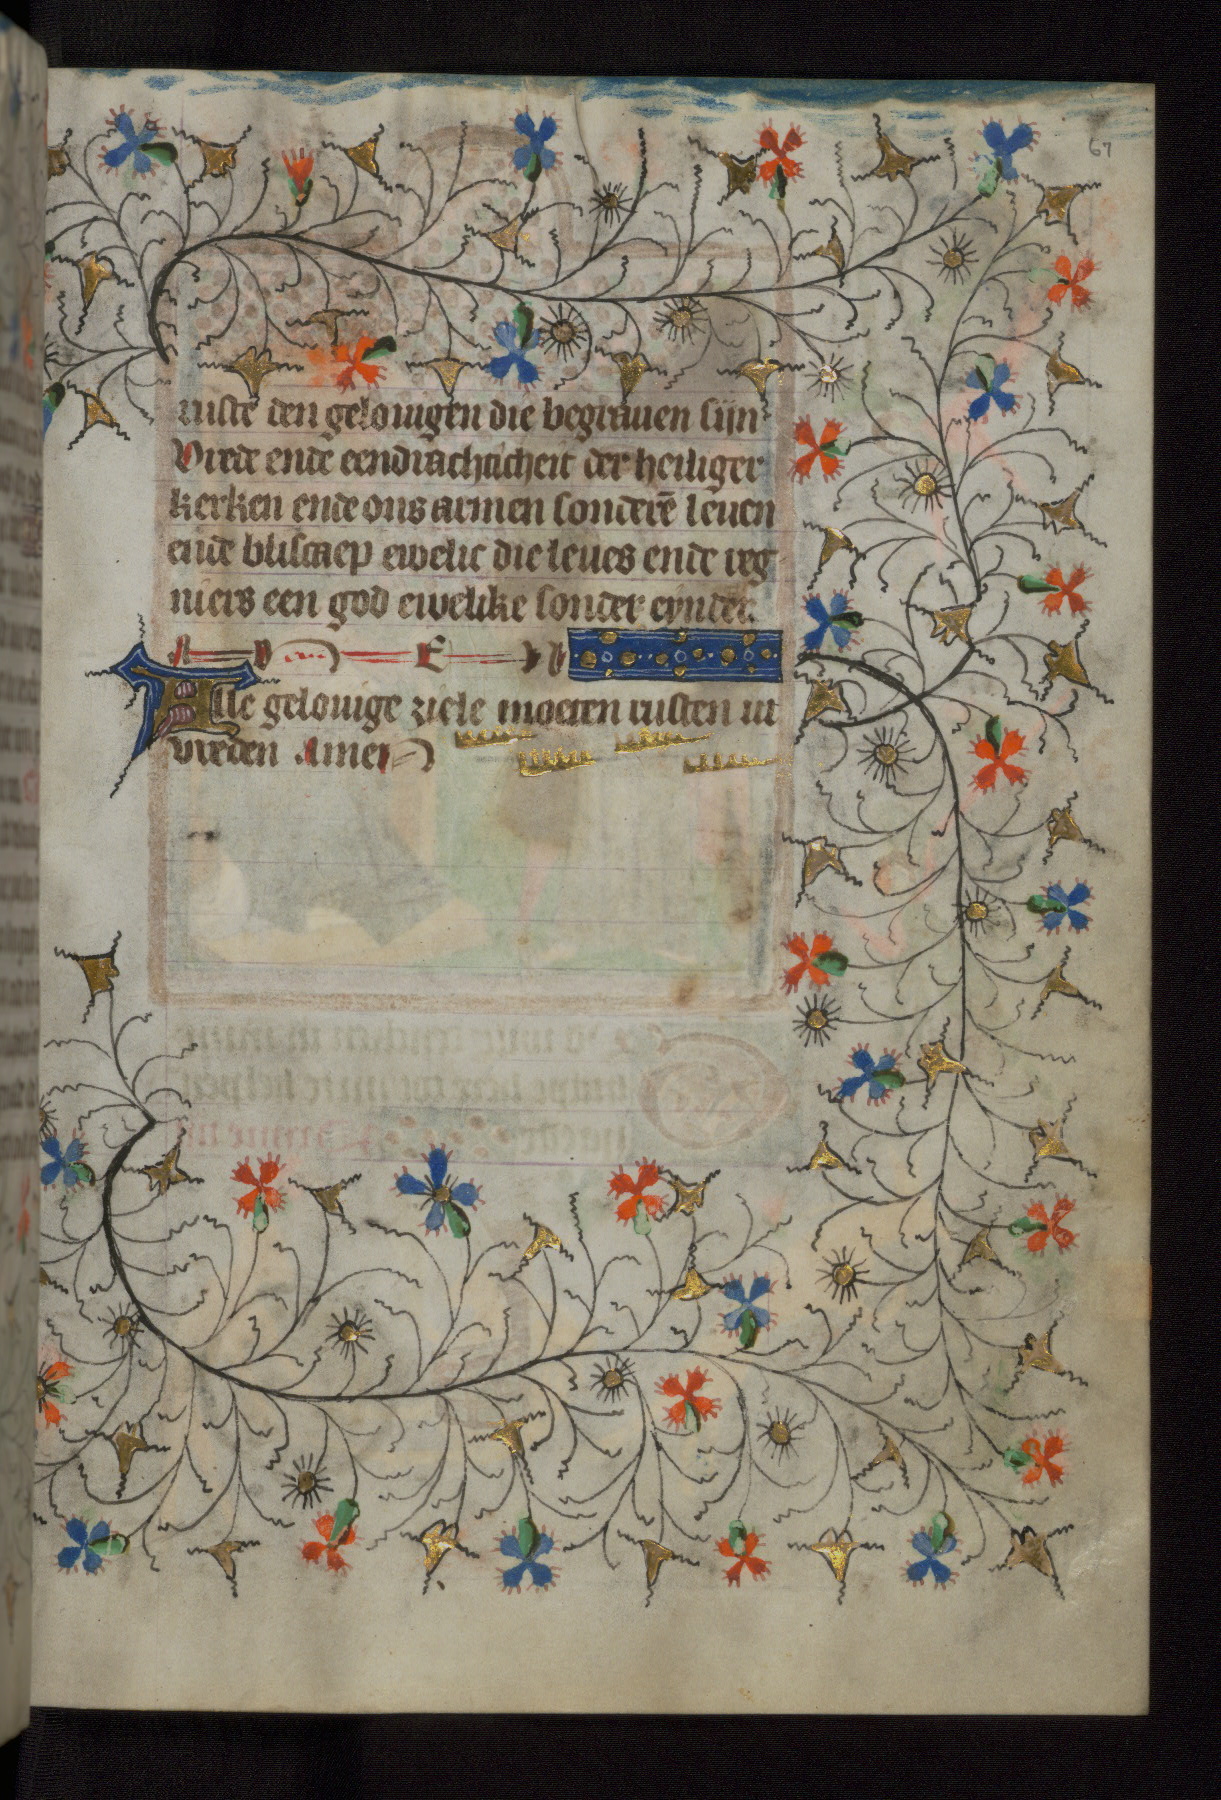 67
ruste den gelouigen die begrauen sijn
Vrede ende eendrachticheit der heiliger
kerken ende ons armen sonderē leuen
ende bliscaep ewelic die leues ende reg
niers een god ewelike sonder eynde
Alle gelouige ziele moeten rusten in
vreden Amen